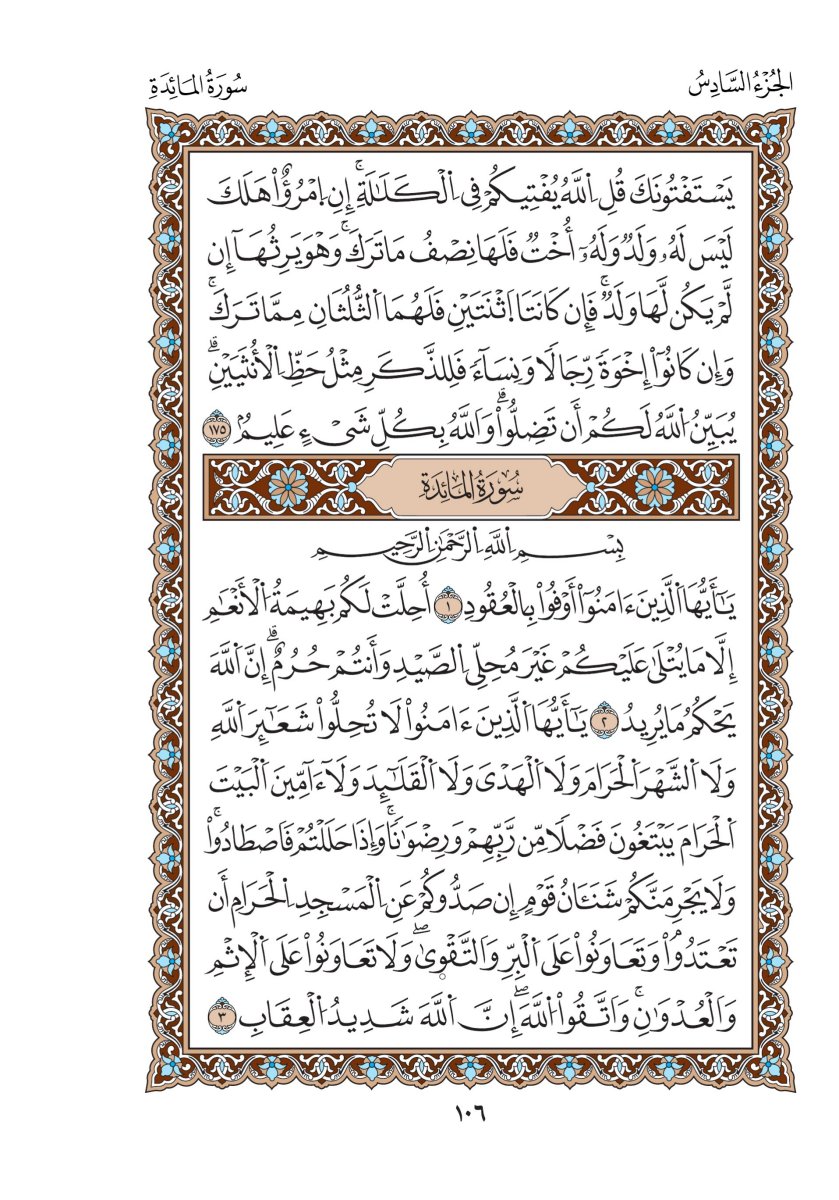 الجُزْءُ السَّادِسُ
سُورَةُ المَائِدَةِ
يَسْتَفْتُونَكَ قُلِ اِ۬للَّهُ يُفْتِيكُمْ فِي اِ۬لْكَلَٰلَةِۚ إِنِ اِ۪مْرُؤٌاْ هَلَكَ
لَيْسَ لَهُۥ وَلَدٌ وَلَهُۥٓ أُخْتٌ فَلَهَا نِصْفُ مَا تَرَكَۚ وَهْوَ يَرِثُهَآ إِن
لَّمْ يَكُن لَّهَا وَلَدٌۚ فَإِن كَانَتَا اَ۪ثْنَتَيْنِ فَلَهُمَا اَ۬لثُّلُثَانِ مِمَّا تَرَكَۚ
وَإِن كَانُوٓاْ إِخْوَةً رِّجَالًا وَنِسَآءً فَلِلذَّكَرِ مِثْلُ حَظِّ اِ۬لْأُنثَيَيْنِۗ
يُبَيِّنُ اُ۬للَّهُ لَكُمْ أَن تَضِلُّواْۗ وَاَللَّهُ بِكُلِّ شَيْءٍ عَلِيمٌۢ ١٧٥
سُورَةُ المَائِدَةِ
بِسْمِ اِ۬للَّهِ اِ۬لرَّحْمَٰنِ اِ۬لرَّحِيمِ
يَٰٓأَيُّهَا اَ۬لَّذِينَ ءَامَنُوٓاْ أَوْفُواْ بِالْعُقُودِ ١ أُحِلَّتْ لَكُم بَهِيمَةُ اُ۬لْأَنْعَٰمِ
إِلَّا مَا يُتْلَىٰ عَلَيْكُمْ غَيْرَ مُحِلِّي اِ۬لصَّيْدِ وَأَنتُمْ حُرُمٌۗ إِنَّ اَ۬للَّهَ
يَحْكُمُ مَا يُرِيدُ ٢ يَٰٓأَيُّهَا اَ۬لَّذِينَ ءَامَنُواْ لَا تُحِلُّواْ شَعَٰٓئِرَ اَ۬للَّهِ
وَلَا اَ۬لشَّهْرَ اَ۬لْحَرَامَ وَلَا اَ۬لْهَدْيَ وَلَا اَ۬لْقَلَٰٓئِدَ وَلَآ ءَآمِّينَ اَ۬لْبَيْتَ
اَ۬لْحَرَامَ يَبْتَغُونَ فَضْلًا مِّن رَّبِّهِمْ وَرِضْوَٰنًاۚ وَإِذَا حَلَلْتُمْ فَاصْطَادُواْۚ
وَلَا يَجْرِمَنَّكُمْ شَنَـَٔانُ قَوْمٍ إِن صَدُّوكُمْ عَنِ اِ۬لْمَسْجِدِ اِ۬لْحَرَامِ أَن
تَعْتَدُواْۘ وَتَعَاوَنُواْ عَلَى اَ۬لْبِرِّ وَالتَّقْوَىٰۖ وَلَا تَعَاوَنُواْ عَلَى اَ۬لْإِثْمِ
وَالْعُدْوَٰنِۚ وَاتَّقُواْ اُ۬للَّهَۖ إِنَّ اَ۬للَّهَ شَدِيدُ اُ۬لْعِقَابِ ٣
١٠٦